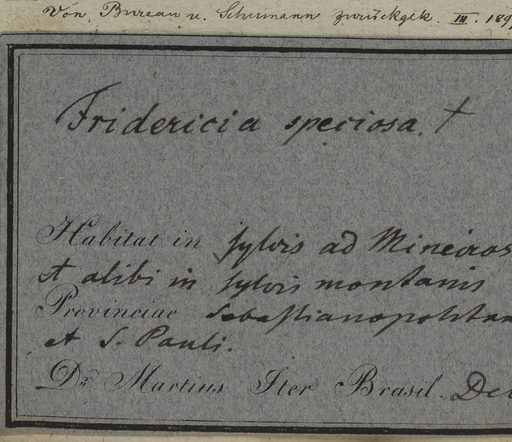 Von Bureau u. Schumann zurückgek. III. 189
Fridericia speciosa. †
Habitat in sylvis ad Mineiros
et alibi in sylvis montanis
Provinciae Sebastianopolitan
et S. Pauli.
Dr. Martius Iter Brasil. De